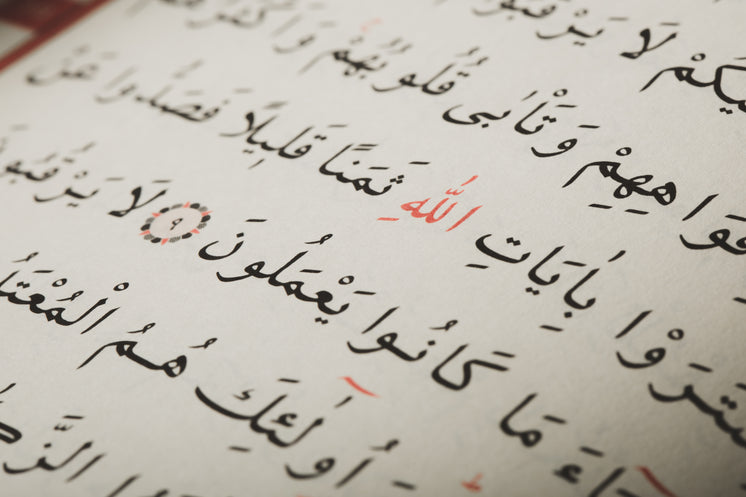 يْكُمْ لَا يَرْقُبُوا
فْوَاهِهِمْ وَتَأْبَىٰ قُلُوبُهُمْ وَأَكْثَرُ
شْتَرَوْا بِـَٔايَاتِ اللَّهِ ثَمَنًا قَلِيلًا فَصَدُّوا عَنْ
اءَ مَا كَانُوا يَعْمَلُونَ ٩ لَا يَرْقُبُو
أُولَٰئِكَ هُمُ الْمُعْتَد
الزَّكَ